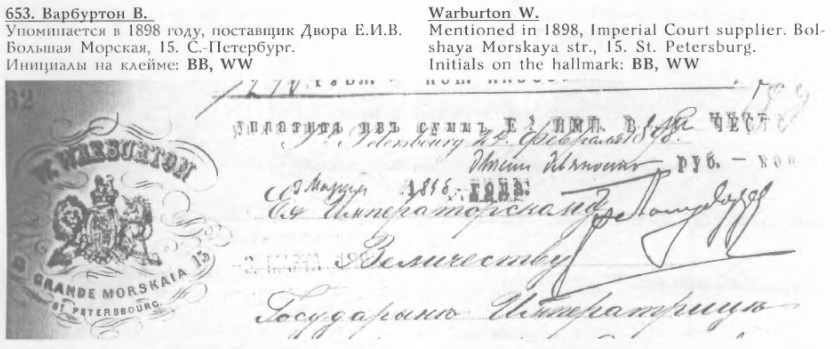 653. Варбуртон В.
Упоминается в 1898 году, поставщик Двора Е.И.В.
Большая Морская, 15. С.-Петербург.
Инициалы на клейме: ВВ, WW
Warburton W.
Mentioned in 1898, Imperial Court supplier. Bol-
shaya Morskaya str., 15. St. Petersburg.
Initials on the hallmark: BB, WW
W. WARBURTON
GRANDE MORSKAIA 15
ST PETERSBOURG.
уплатить изъ суммъ Е? ИМП. В
St. Petersbourg 24 февраля 1898.
РУБ. — КОП
Марта 1898 ГОДА.
Ея Императорскому
Величеству
Государынѣ Императрицѣ